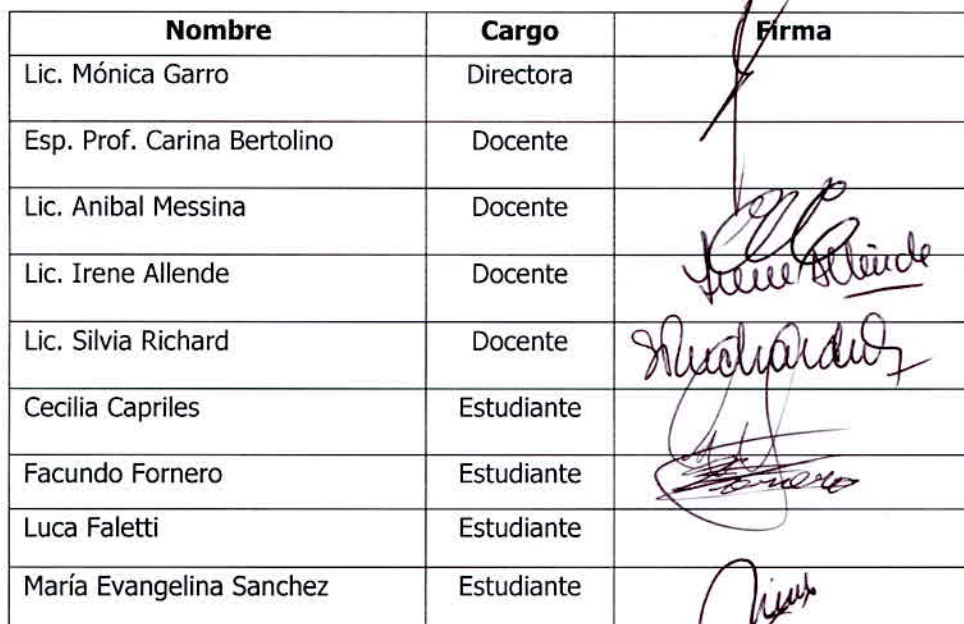 Nombre Cargo Firma
Lic. Mónica Garro Directora
Esp. Prof. Carina Bertolino Docente
Lic. Anibal Messina Docente
Lic. Irene Allende Docente Irene Allende
Lic. Silvia Richard Docente
Cecilia Capriles Estudiante
Facundo Fornero Estudiante Fornero
Luca Faletti Estudiante
María Evangelina Sanchez Estudiante